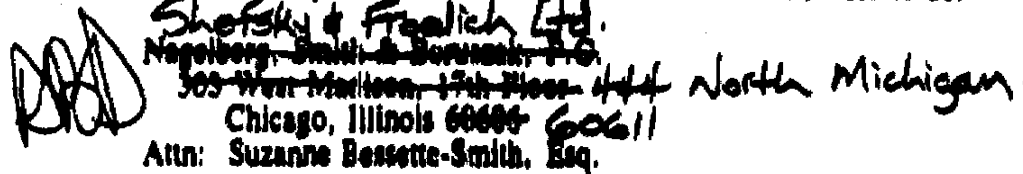 Shefsky & Froelich Ltd.
Nagelberg, Smith & P.C.
303 West Madison, 17th Floor 444 North Michigan
Chicago, Illinois 60606 60611
Attn: Suzanne Bessette-Smith, Esq.